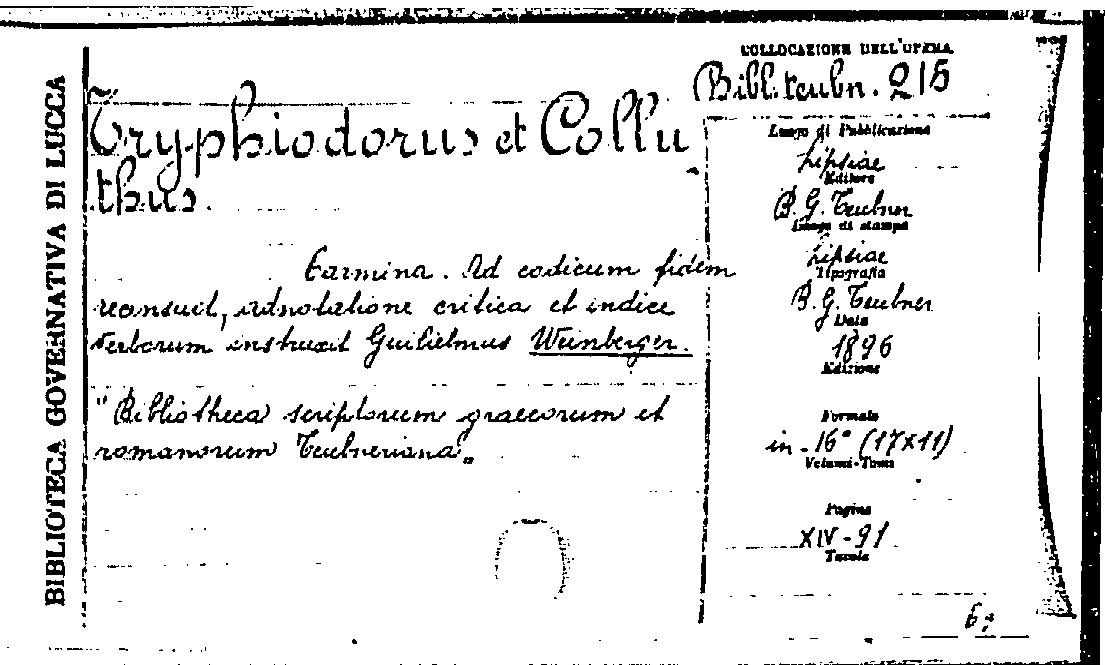 BIBLIOTECA GOVERNATIVA DI LUCCA
Tryphiodorus et Collu
thus.
Carmina. Ad codicum fidem
recensuit, adnotatione critica et indice
verborum instruxit Guilielmus Weinberger.
"Bibliotheca scriptorum graecorum et
romanorum Teubneriana"
COLLOCAZIONE DELL'OPERA
Bibl. teubn. 215
Luogo di Pubblicazione
Lipsiae
Editore
B. G. Teubner
Luogo di stampa
Lipsiae
Tipografia
B. G. Teubner
Data
1896
Edizione
Formato
in-16° (17x11)
Volumi-Tomi
Pagine
XIV-91
Tavole